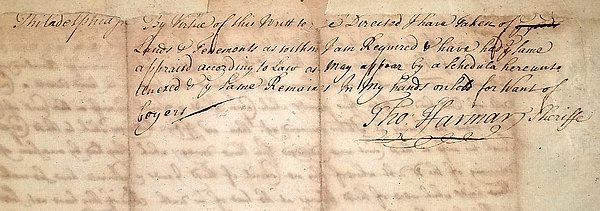 Philadelphia ss By Virtue of this Writt to me Directed I have taken of ye
Lands & Tenements as within I am Required & have had ye same
appraisd according to Law as may appear by a Schedula hereunto
anexed & ye same Remains In my hands onsold for Want of
boyers
Tho Harmar Sheriffe